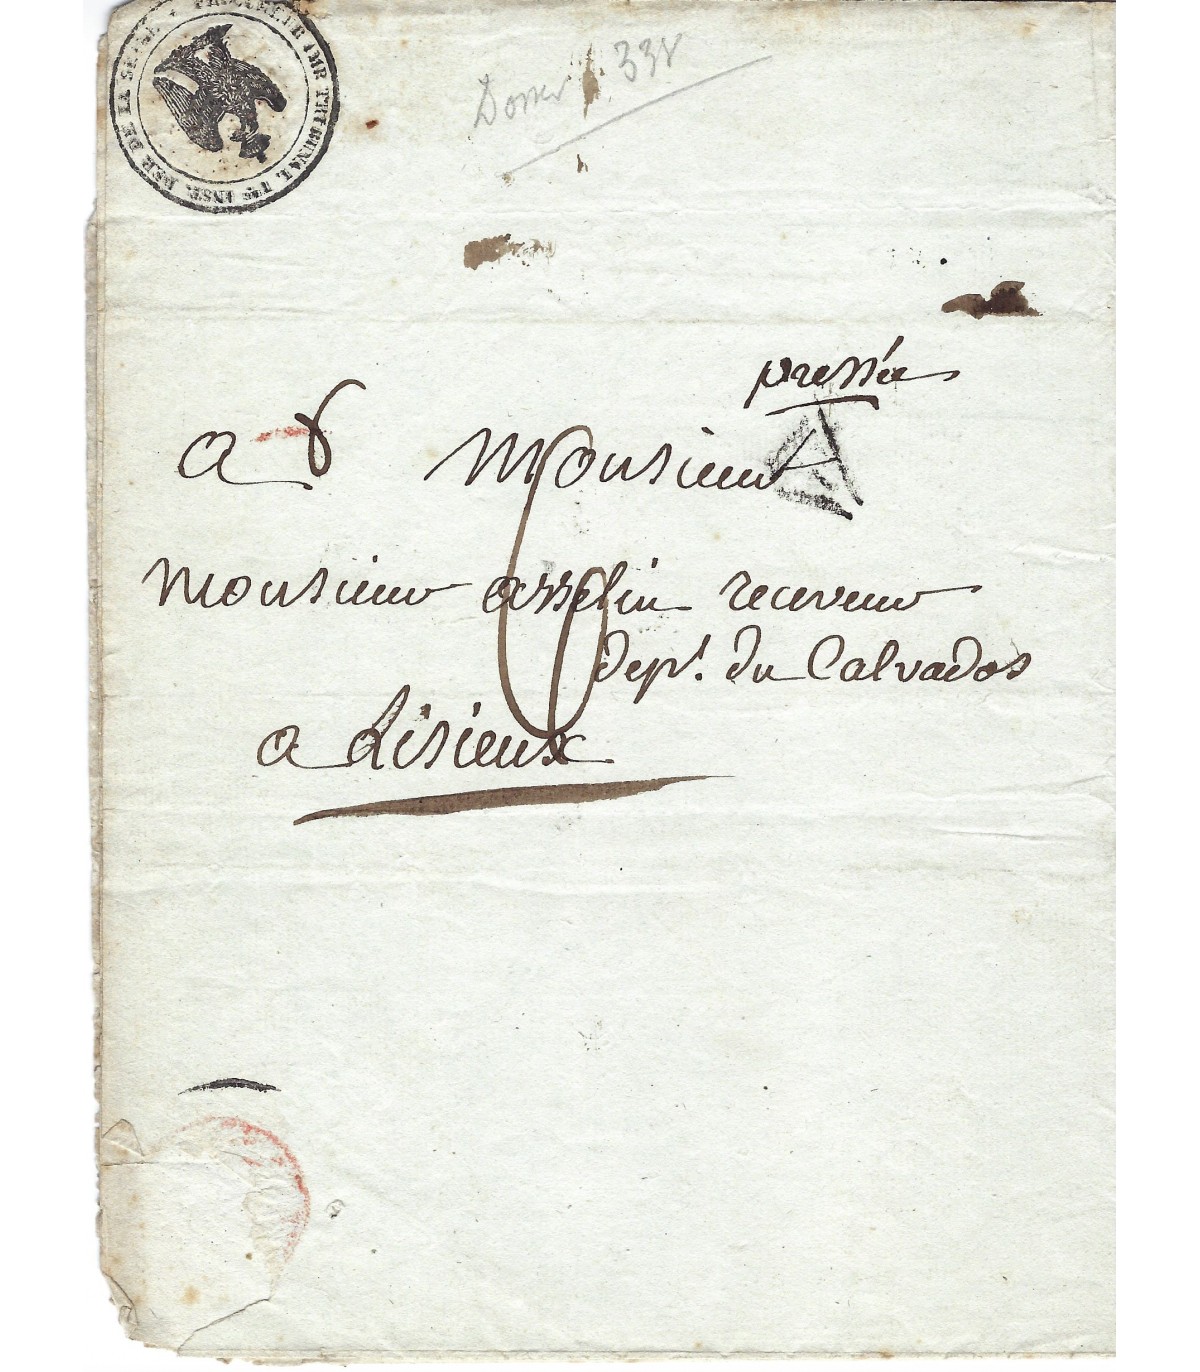 PROCUREUR IMP TRIBUNAL 1re INSE DE LA SEINE
Dossier 338
pressée
a Monsieur
Monsieur asselin receveur
dept. du Calvados
a Lisieux
A
6